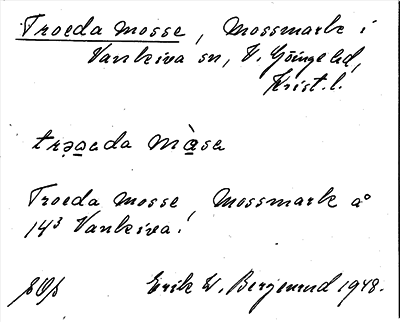 Troeda mosse, Mossmark i
Vankiva sn, V. Göinge hd,
Krist. l.
Troeda Mosse, Mossmark å
14³ Vankiva.
Erik W. Bergenund 1948.